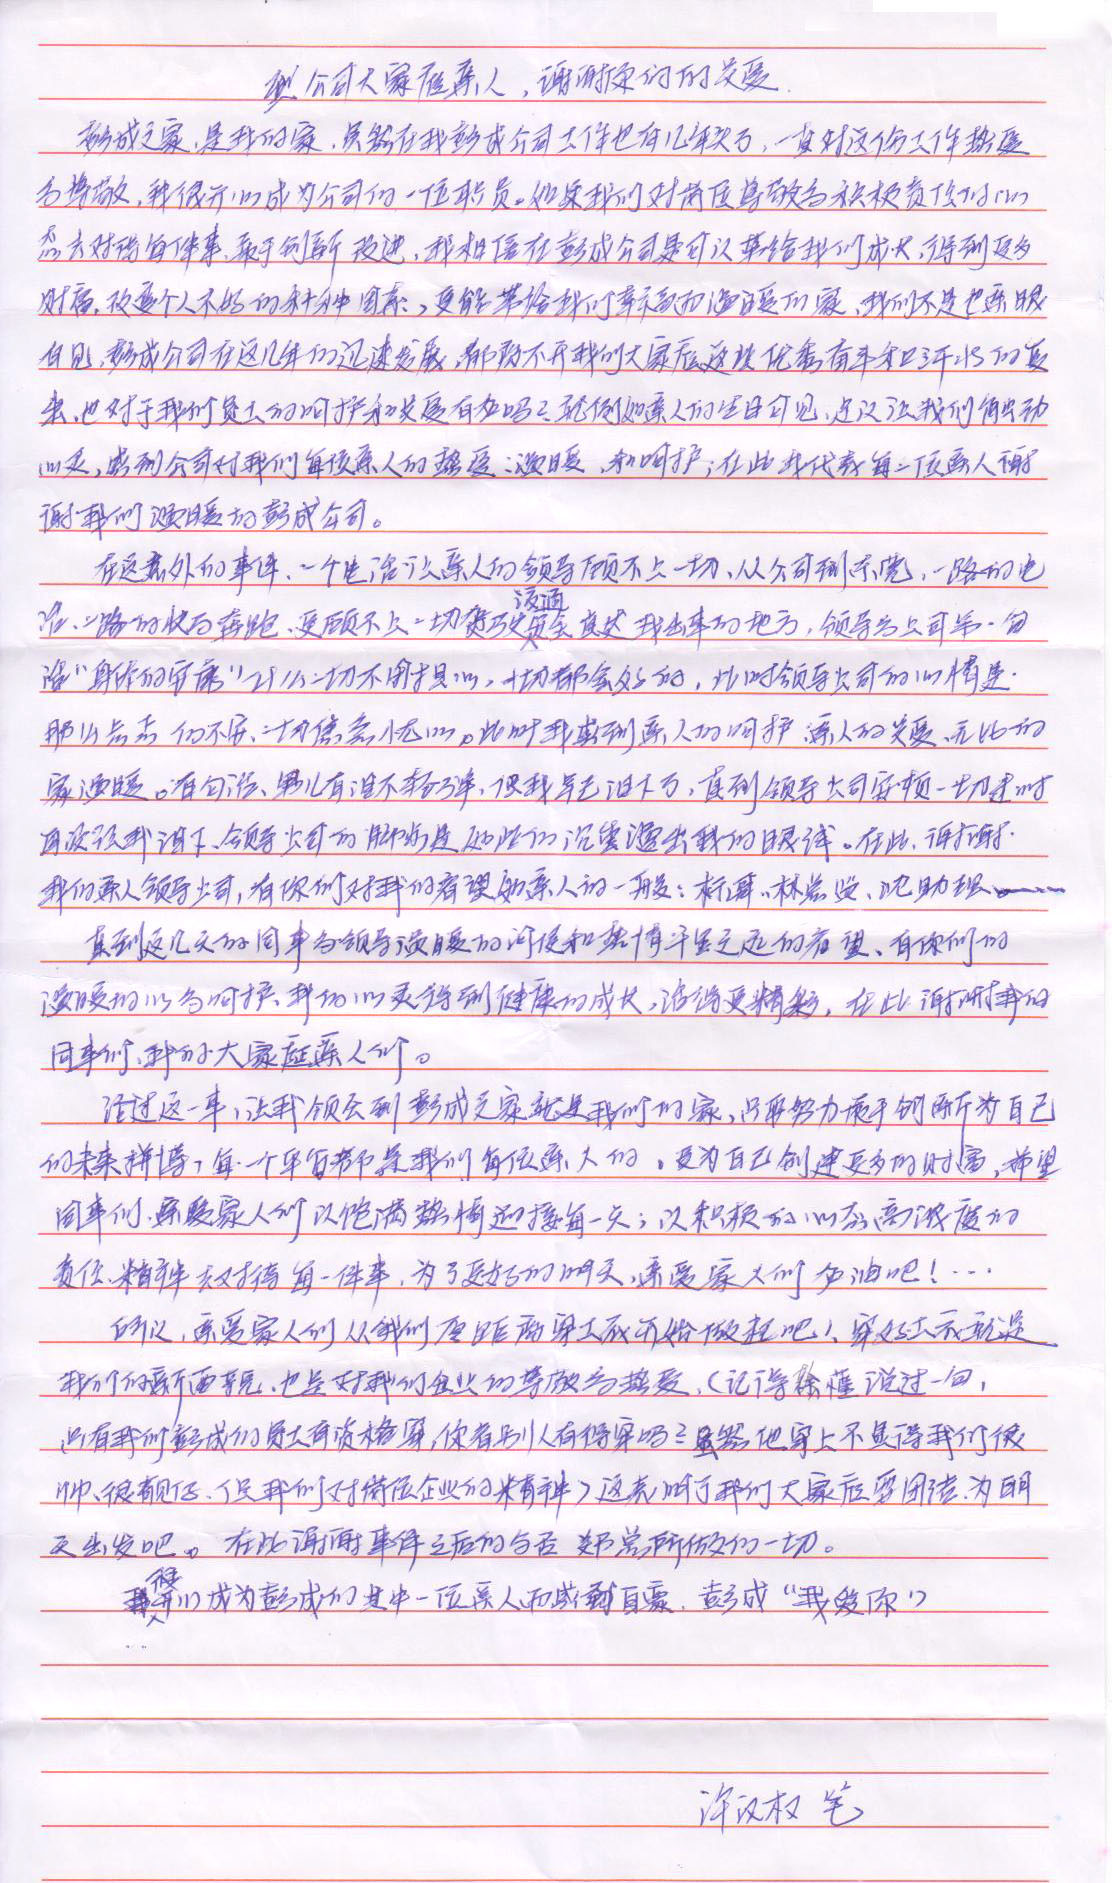 致公司大家庭亲人，谢谢你们的关爱
彭成之家，是我的家，虽然在我彭成公司工作也有几年次了，一直对这份工作热爱
与尊敬，我很开心成为公司的一位职员。如果我们对岗位尊敬与积极责任的心
态去对待每件事，敢于创新改进，我相信在彭成公司是可以带给我们成长，得到更多
财富，改变个人不好的种种因素，更能带给我们幸福而温暖的家，我们不是也亲眼
有见，彭成公司在这几年的迅速发展，都离不开我们大家庭这块优秀奋斗和汗水的
来，也对于我们员工的呵护和关爱有加吗？就例如亲人的生日可见，足以让我们每
心灵，感到公司对我们每位亲人的热爱、温暖、和呵护；在此我代表每一位亲人谢
谢我们温暖的彭成公司。
在这意外的事件，一个电话让亲人的领导顾不上一切，从公司到东莞，一路的电
话，一路的快马奔跑，更顾不上一切 交通 直达我出事的地方，领导与公司第一句
话“身体的安康”什么一切不用担心，一切都会好的，此时领导公司的心情是
那么 的不安，一切 忧心。此时我感到亲人的呵护，亲人的关爱，无比的
家温暖。有句话，男儿有泪不轻弹，但我早已泪下了，直到领导公司安顿一切 时
再次让我泪下，领导公司的脚步是如此的沉重 出我的眼球。在此，谢谢
我的亲人领导公司，有你们对我的看望如亲人的一般：杨 、林总监、沈助理
直到这几天的同事与领导温暖的问候和热情 的看望，有你们的
温暖的心与呵护，我的心灵得到健康的成长，活得更精彩，在此谢谢我的
同事们，我的大家庭亲人们。
经过这一事，让我领会到彭成之家就是我们的家，只要努力敢于创新为自己
的未来拼搏，每一个平台都是我们每位亲人的。更为自己创建更多的财富，希望
同事们，亲爱家人们以饱满热情迎接每一天；以积极的心态，高 度的
责任、精神去对待每一件事，为了更好的明天，亲爱家人们加油吧！…
所以，亲爱家人们从我们 穿工衣开始做起吧！穿好工衣就是
我们的新面貌，也是对我们企业的尊敬与热爱，（记得徐 说过一句，
只有我们彭成的员工有资格穿，你看别人有得穿吗？虽然他穿上不显得我们很
帅、很靓仔，但我们对岗位企业的精神）这表明了我们大家庭要团结，为明
天出发吧。在此谢谢事件之后的 郑总所做的一切。
我 们成为彭成的其中一位亲人而感到自豪，彭成“我爱你”
许汉权 笔